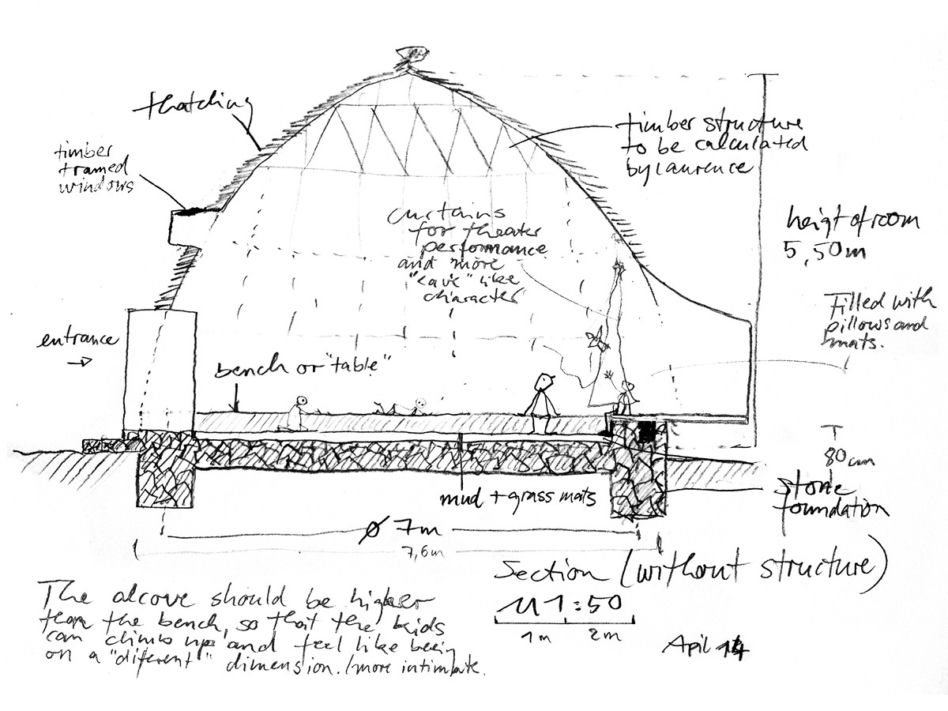 thatching
timber
framed
windows
timber structure
to be calculated
by laurence
curtains
for theater
performance
and more
"cave" like
character
heigt of room
5,50m
Filled with
pillows and
mats.
entrance
bench or "table"
80 cm
mud + grass mats
stone
foundation
Ø 7m
7,6m
Section (without structure)
M 1:50
1m 2m
April 14
The alcove should be higher
than the bench, so that the kids
can climb up, and feel like being
on a "diferent" dimension./more intimate.